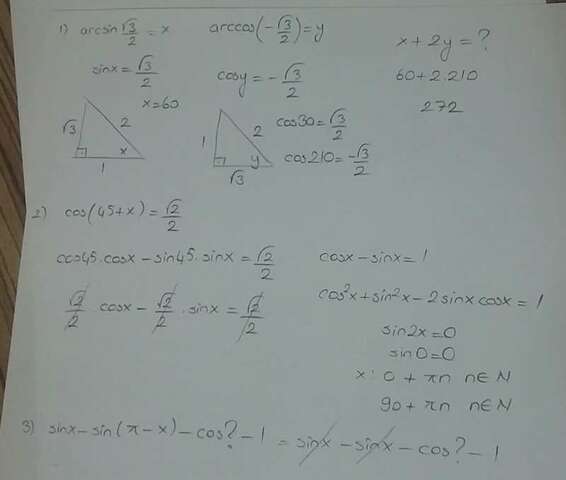 1) arcsin √3/2 = x   arccos(-√3/2) = y   x + 2y = ?
sinx = √3/2   cosy = -√3/2   60 + 2.210
x = 60   272
√3 2 x 1
1 2 y √3
cos30 = √3/2
cos210 = -√3/2
2) cos(45+x) = √2/2
cos45.cosx - sin45.sinx = √2/2   cosx - sinx = 1
√2/2 cosx - √2/2 . sinx = √2/2   cos²x + sin²x - 2sinxcosx = 1
sin2x = 0
sin0 = 0
x: 0 + πn n∈N
90 + πn n∈N
3) sinx - sin(π - x) - cos? - 1 = sinx - sinx - cos? - 1